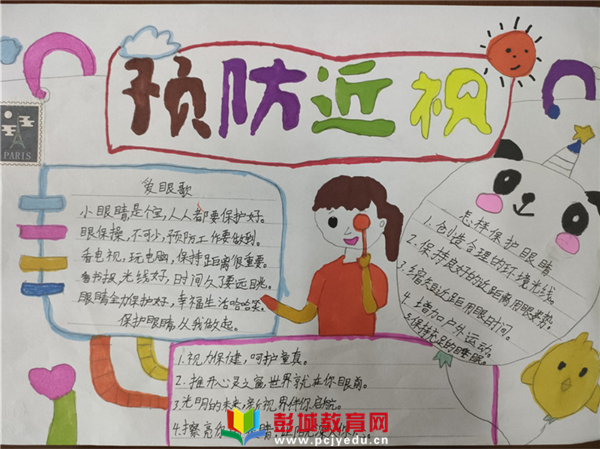 预防近视
PARIS
爱眼歌
小眼睛是个宝,人人都要保护好。
眼保操,不可少,预防工作要做到。
看电视,玩电脑,保持距离很重要。
看书报,光线好,时间久了要远眺。
眼睛全力保护好,幸福生活哈哈笑。
保护眼睛,从我做起。
怎样保护眼睛
1.创造合理的环境光线。
2.保持良好的近距离用眼姿势。
3.缩短近距用眼时间。
4.增加户外运动。
5.保持充足的睡眠。
1.视力保健,呵护童真。
2.推开心灵之窗,世界就在你眼前。
3.光明的未来,新视界伴你启航。
4.擦亮你
彭城教育网
www.pcjyedu.cn